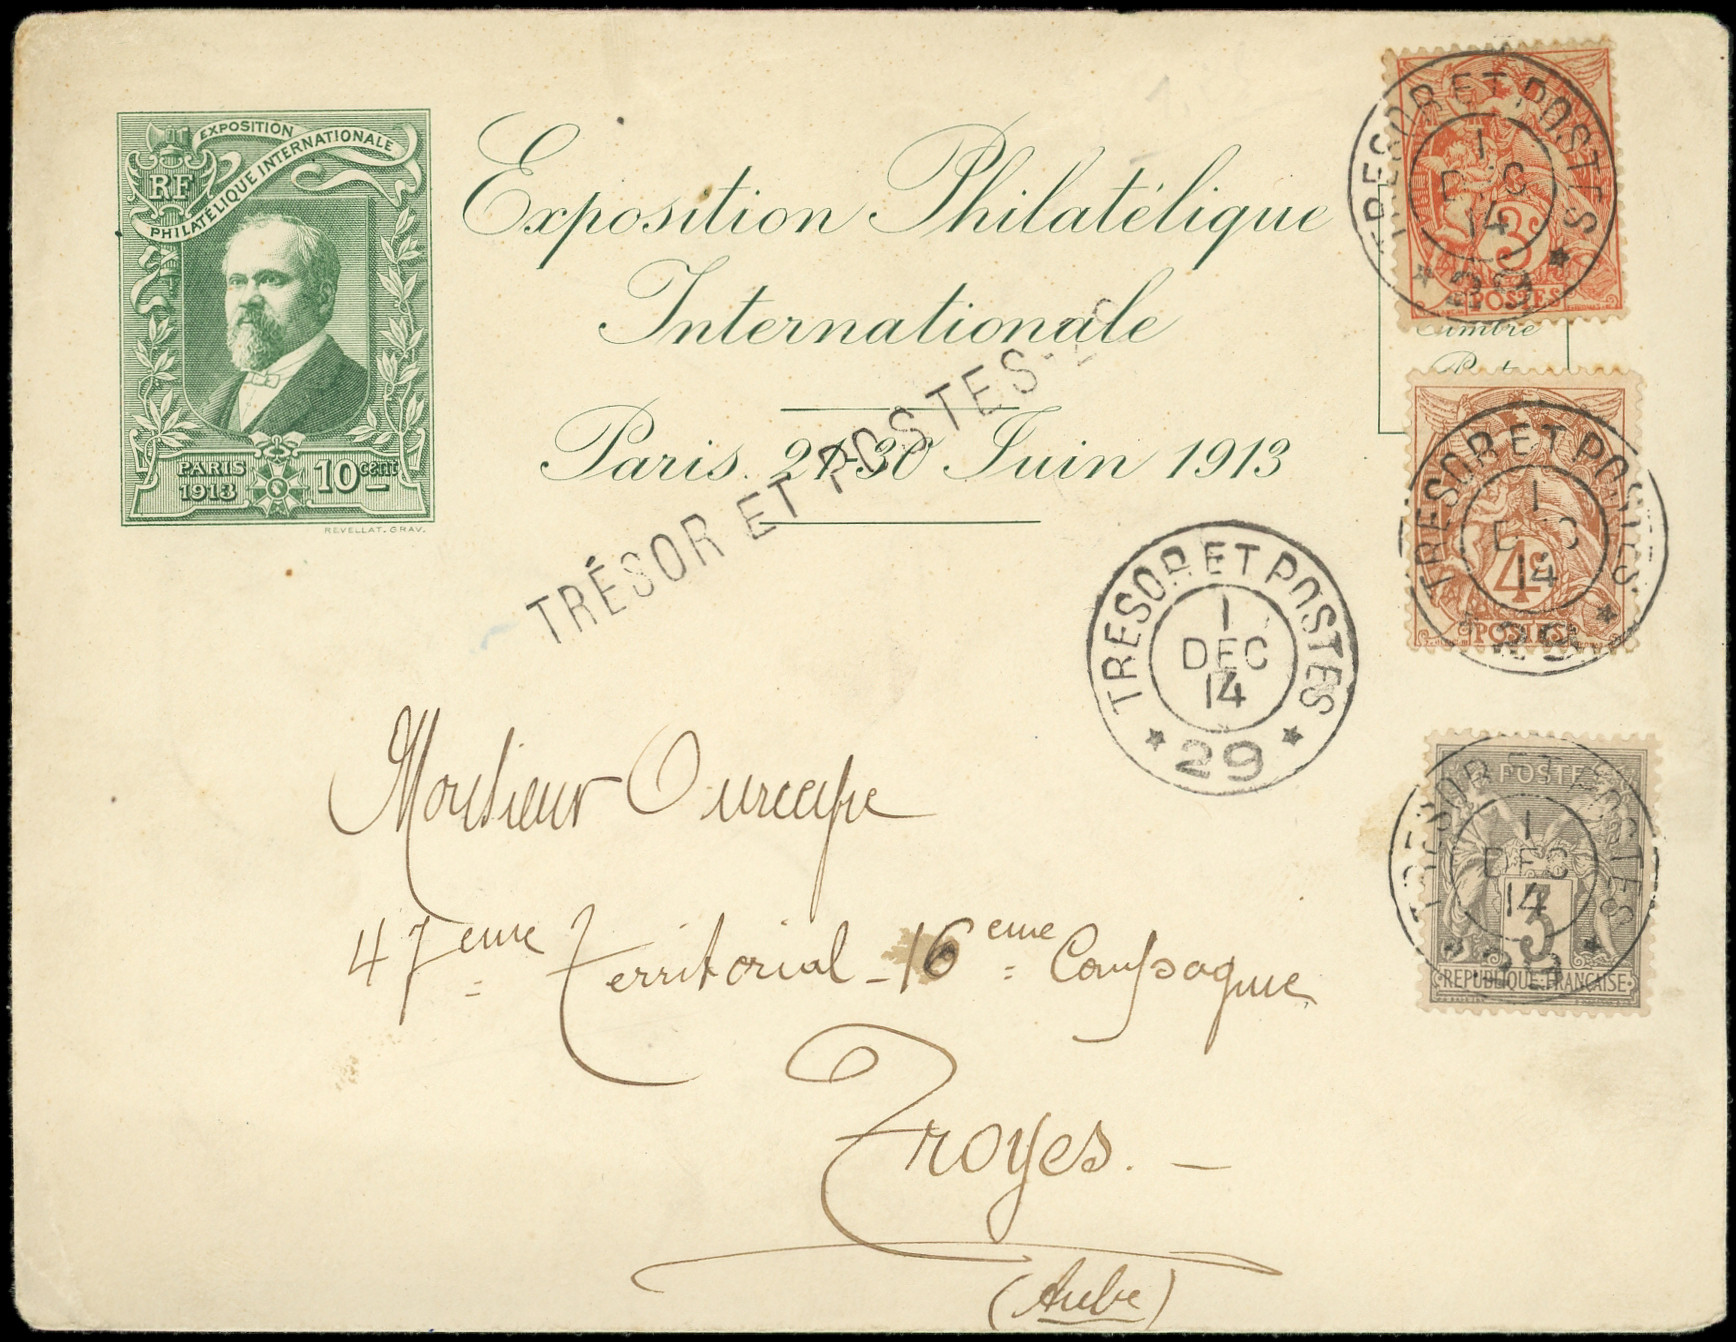 EXPOSITION
PHILATÉLIQUE INTERNATIONALE
RF
PARIS
1913
10 cent
REVELLAT. GRAV.
Exposition Philatélique
Internationale
Paris. 21-30 Juin 1913
TRÉSOR ET POSTES
TRESOR ET POSTES
1
DEC
14
29
3c
POSTES
Timbre
TRESOR ET POSTES
1
DEC
14
29
4c
POSTES
TRESOR ET POSTES
1
DEC
14
* 29 *
POSTES
3
REPUBLIQUE FRANÇAISE
TRESOR ET POSTES
1
DEC
14
29
Monsieur Ourcepe
47eme Territorial - 16eme Compagnie
Troyes. -
(Aube)